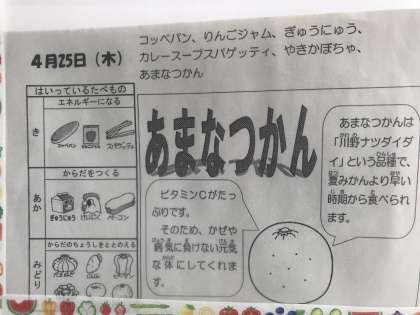 4月25日（木）
コッペパン、りんごジャム、ぎゅうにゅう、
カレースープスパゲッティ、やきかぼちゃ、
あまなつかん
はいっているたべもの
エネルギーになる
き
コッペパン
スパゲッティ
からだをつくる
あか
ぎゅうにゅう
ベーコン
からだのちょうしをととのえる
みどり
あまなつかん
あまなつかんは
「川野ナツダイダ
イ」という品種で、
夏みかんより早い
時期から食べられ
ます。
ビタミンCがたっ
ぷりです。
そのため、かぜや
病気に負けない元気
な体にしてくれま
す。